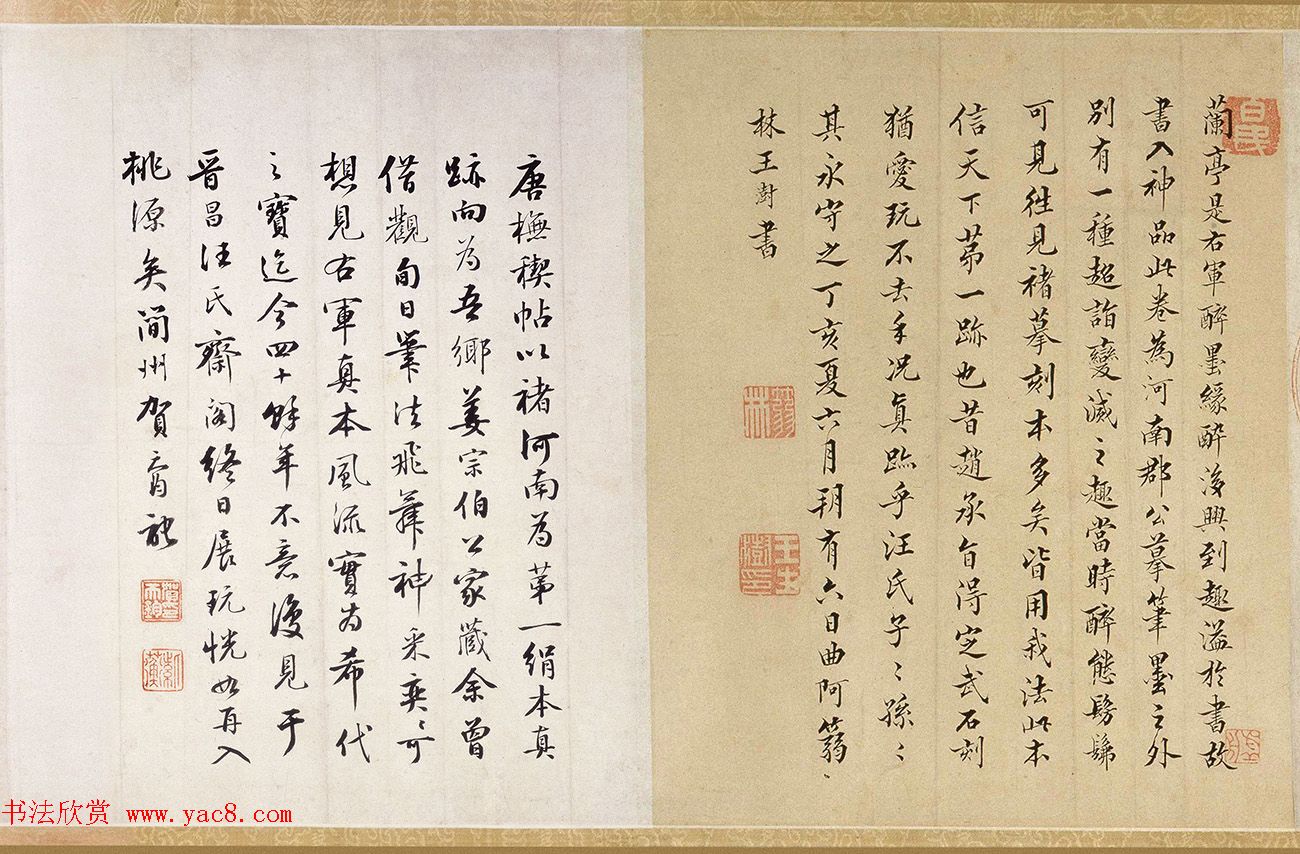 蘭亭是右軍醉墨緣醉後興到趣溢於書故
書入神品此卷為河南郡公摹筆墨之外
別有一種超詣變滅之趣當時醉態髣髴
可見往見褚摹刻本多矣皆用我法此本
信天下苐一跡也昔趙承旨得定武石刻
猶愛玩不去手况真跡乎汪氏子〻孫〻
其永守之丁亥夏六月朔有六日曲阿蒻〻
林王澍書
唐橅禊帖以褚河南為苐一絹本真
跡向為吾鄉姜宗伯公家藏余曾
借觀旬日筆法飛舞神采奕〻可
想見右軍真本風流實為希代
之寶迄今四十餘年不意復見于
晉昌汪氏齋閣終日展玩恍如再入
桃源矣簡州賀
书法欣赏 www.yac8.com